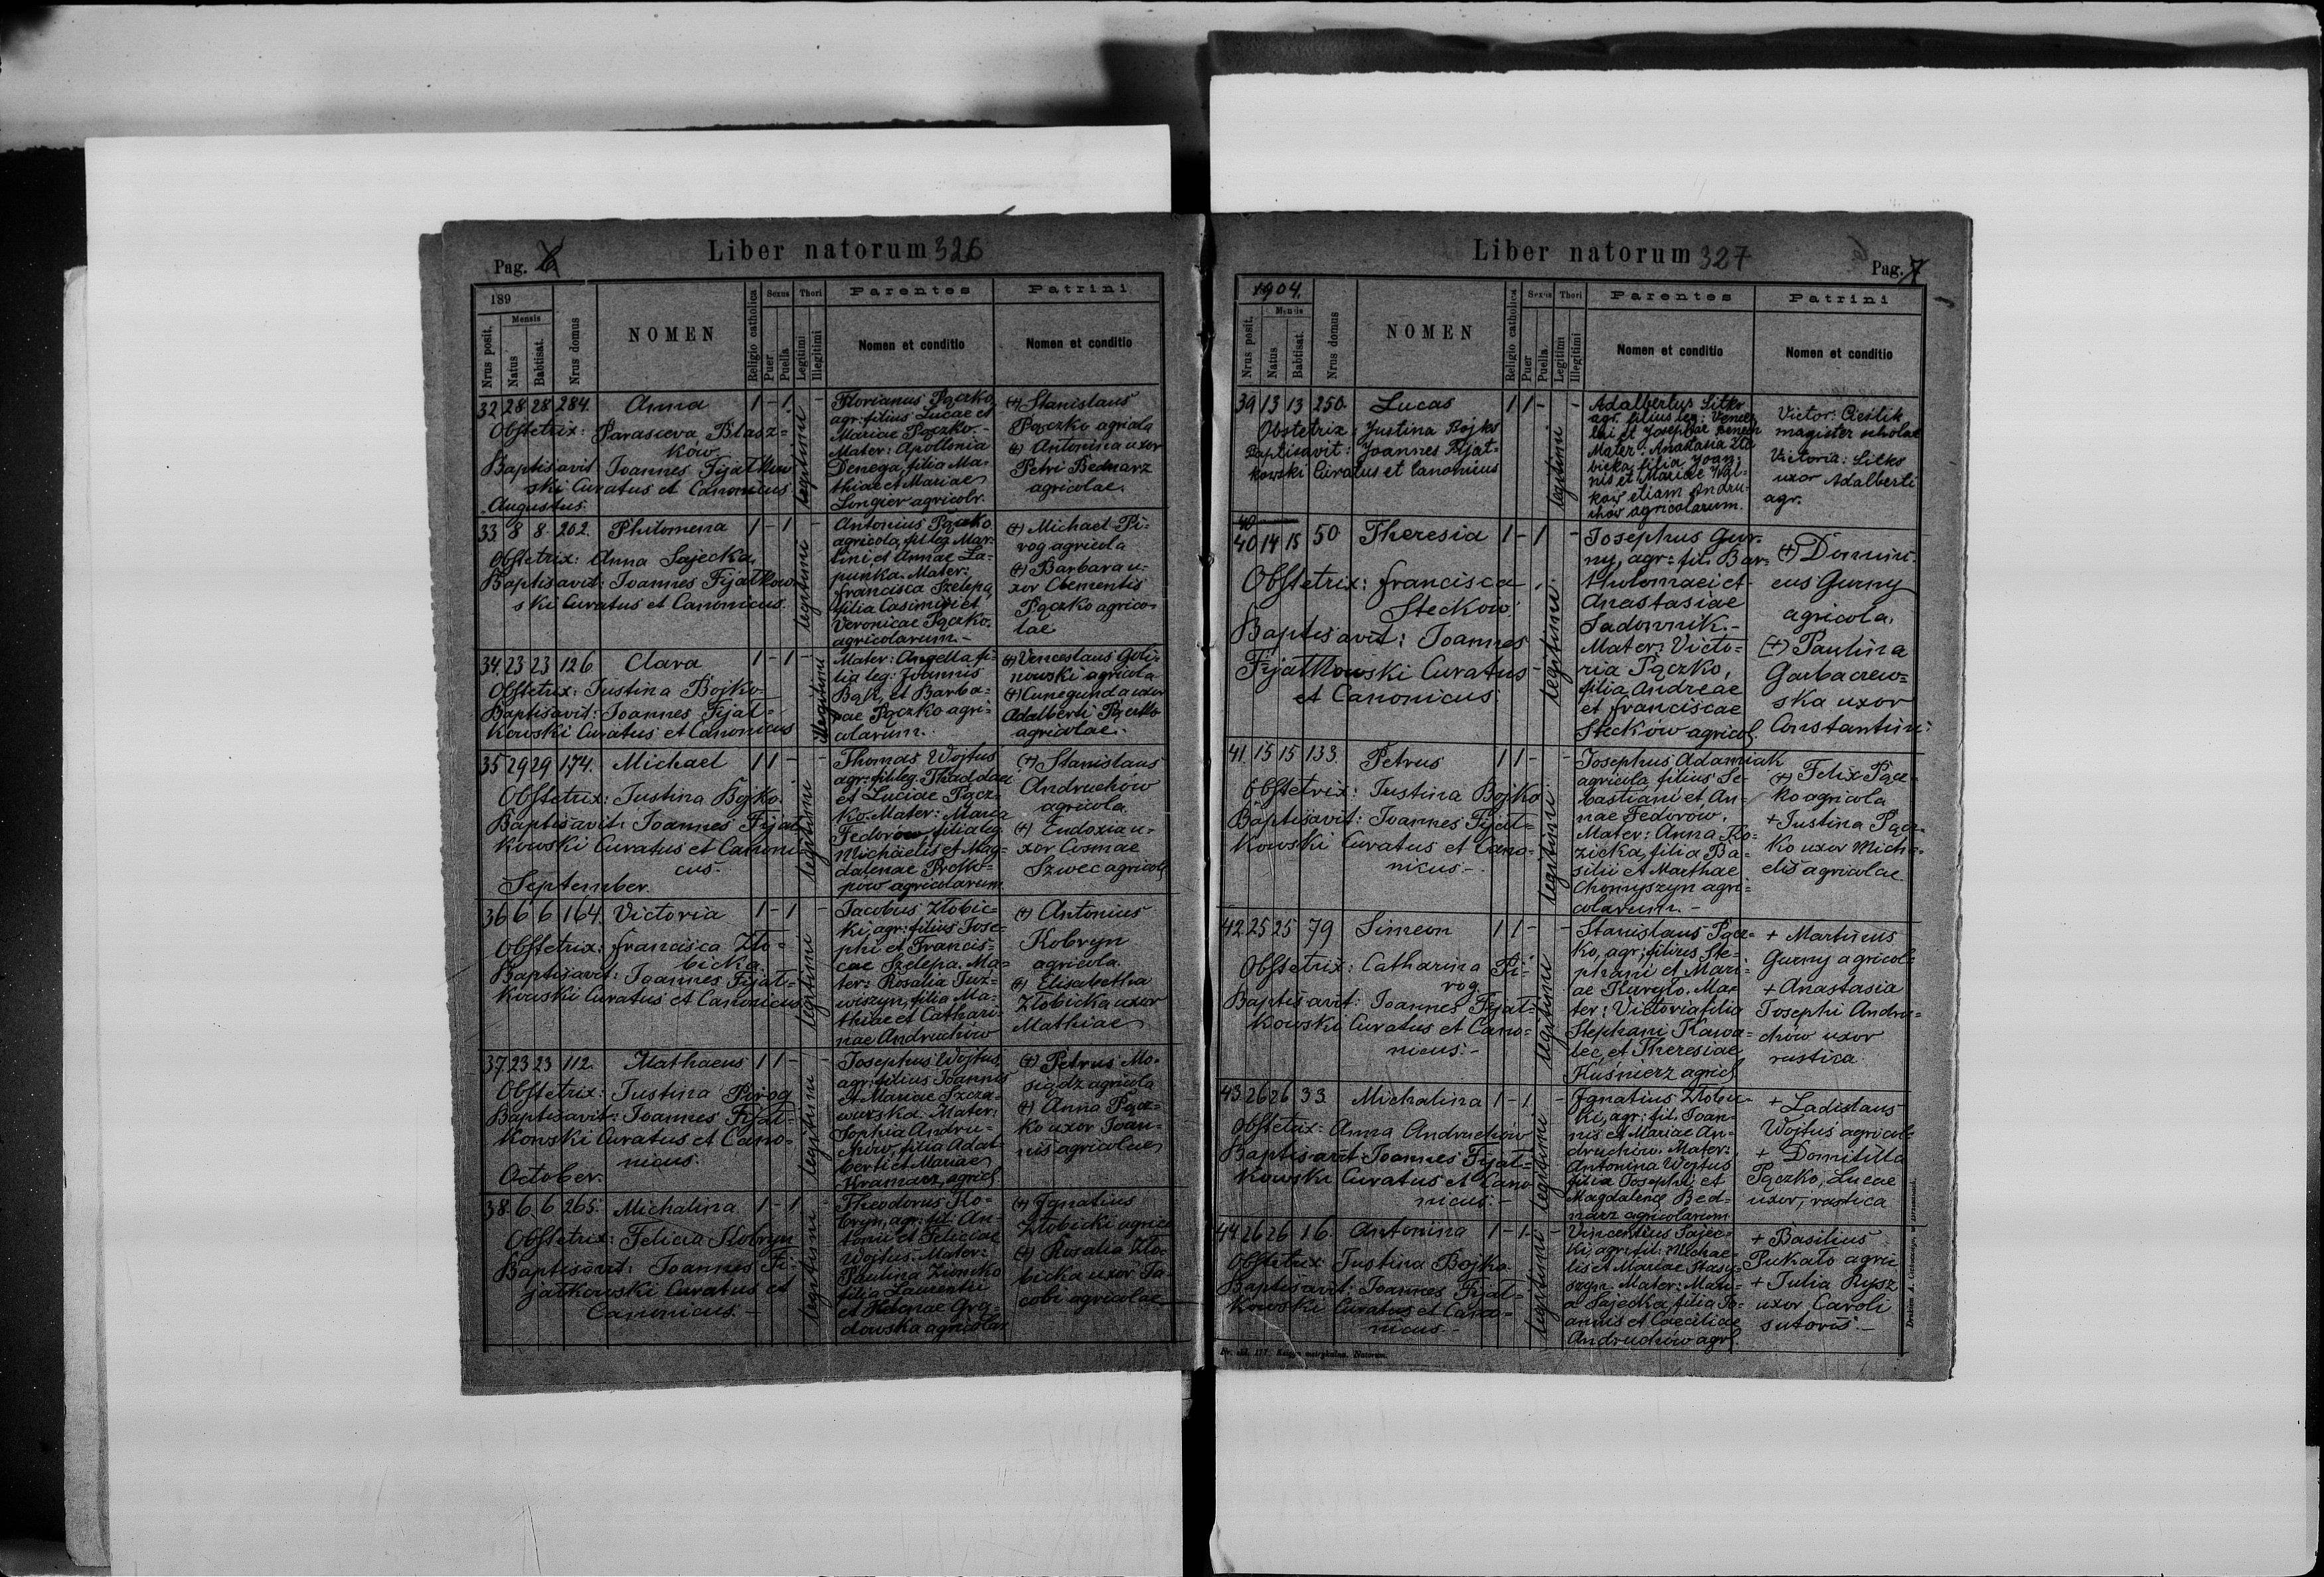 Pag. 6
Liber natorum 326
189
Mensis
Nrus posit.
Natus
Babtisat.
Nrus domus
NOMEN
Religio catholica
Sexus
Puer
Puella
Thori
Legitimi
Illegitimi
Parentes
Nomen et conditio
Patrini
Nomen et conditio
32 28 28 284. Anna 1 - 1 -
Obstetrix: Parasceva Blasz=
ków.
Baptisavit Joannes Fijałkow
ski Curatus et Canonicus
Augustus.
legitimi
Florianus Pączko,
agr: filius Lucae et
Mariae Pączko.-
Mater: Apollonia
Denega, filia Ma-
thiae et Mariae
Longier agricolr.
(+) Stanislaus
Pączko agricola
(+) Antonina uxor
Petri Bednarz
agricolae.
33 8 8. 202. Philomena 1 - 1 -
Obstetrix: Anna Sajecka.
Baptisavit: Joannes Fijałkow=
ski Curatus et Canonicus.
legitimi
Antonius Pączko
agricola, fil leg. Mar-
tini et Annae Ła-
punka. Mater:
Francisca Szelepa,
filia Casimiri et
Veronicae Pączko.
agricolarum.-
(+) Michael Pi=
rog agricola
(+) Barbara u=
xor Clementis
Pączko agrico=
lae
34. 23 23 126 Clara 1 - 1 -
Obstetrix: Justina Bojko-
Baptisavit: Joannes Fijał=
kowski Curatus et Canonicus
illegitimi
Mater: Angella fi-
lia leg: Joannis
Bąk, et Barba=
rae Pączko agri=
colarum.
(+) Venceslaus Goli=
nowski agricola
(+) Cunegunda uxor
Adalberti Pączko
agricolae.
35 29 29 174. Michael 1 1 - -
Obstetrix: Justina Bojko.
Baptisavit: Joannes Fijał
kowski Curatus et Canoni
cus.
September.
legitimi
Thomas Wojtus
agr: fil leg. Thaddaei
et Luciae Pącz=
ko. Mater: Maria
Fedorów, filia leg.
Michaelis et Mag=
dalenae Proko=
pów agricolarum
(+) Stanislaus
Andruchów
agricola.
(+) Eudoxia u=
xor Cosmae
Szwec agricol
36 6 6 164. Victoria 1 - 1 -
Obstetrix: Francisca Zło=
bicka.
Baptisavit: Joannes Fijał=
kowski Curatus et Canonicus
legitimi
Jacobus Złobic=
ki, agr: filius Jose=
phi et Francis=
cae Szelepa. Ma=
ter: Rosalia Tuz=
wiszyn, filia Ma=
thiae et Cathari=
nae Andruchów
(+) Antonius
Kobryn
agricola.
(+) Elisabetha
Złobicka uxor
Mathiae
37 23 23 112. Mathaeus 1 1 - -
Obstetrix: Justina Pirog
Baptisavit: Joannes Fijał=
kowski Curatus et Cano=
nicus.
October.
legitimi
Josephus Wojtus,
agr: filius Joannis
et Mariae Szcza=
wurska. Mater:
Sophia Andru=
chów, filia Adal=
berti et Mariae
Kramarz, agricl.
(+) Petrus Mo=
siądz agricola
(+) Anna Pącz=
ko uxor Joan=
nis agricolae
38. 6 6 265. Michalina 1 - 1 -
Obstetrix: Felicia Kobryn
Baptisavit: Joannes Fi=
jałkowski Curatus et
Canonicus.-
legitimi
Theodorus Ko=
bryn, agr: fil: An=
tonii et Feliciae
Wojtus. Mater:
Paulina Ziomko
filia Laurentii
et Helenae Grą=
dowska agricolar
(+) Ignatius
Złobicki agric
(+) Rosalia Zło=
bicka uxor Ja=
cobi agricolae
Liber natorum 327
Pag. 7
1904.
Mensis
Nrus posit.
Natus
Babtisat.
Nrus domus
NOMEN
Religio catholica
Sexus
Puer
Puella
Thori
Legitimi
Illegitimi
Parentes
Nomen et conditio
Patrini
Nomen et conditio
39 13 13 250. Lucas 1 1 - -
Obstetrix: Justina Bojko
Baptisavit: Joannes Fijał=
kowski Curatus et Canonicus
legitimi
Adalbertus Litko
agr. filius leg: Vences
lai et Josephae
Mater: Anastasia Zło
bicka filia Joan
nis et Mariae Wał=
ków etiam Andru=
chów agricolarum.
Victor: Cieślik
magister scholae
Victoria: Litko
uxor Adalberti
agr.
40
40 14 15 50 Theresia 1 - 1 -
Obstetrix: Francisca
Steckow.
Baptisavit: Joannes
Fijałkowski Curatus
et Canonicus.
legitimi.
Josephus Gur=
ny, agr: fil. Bar=
tholomaei et
Anastasiae
Sadownik.-
Mater: Victo=
ria Pączko,
filia Andreae
et Franciscae
Steckow agricol.
(+) Damini=
cus Gurny
agricola.
(+) Paulina
Garbaczew=
ska uxor
Constantini.
41. 15 15 133. Petrus 1 1 - -
Obstetrix: Justina Bojko
Baptisavit: Joannes Fijał=
kowski Curatus et Cano=
nicus-.
legitimi.
Josephus Adamiak
agricola, filius Se=
bastiani et An=
nae Fedorów.
Mater: Anna Ko=
zicka, filia Ba=
silii et Marthae
Chomyszyn agri=
colarum.-
(+) Felix Pącz=
ko agricola
+ Justina Pącz=
ko uxor Mich=
elis agricolae
42 25 25 79 Simeon 1 1 - -
Obstetrix: Catharina Pi=
rog.
Baptisavit: Joannes Fijał=
kowski Curatus et Cano=
nicus.-
legitimi
Stanislaus Pącz=
ko, agr; filius Ste=
phani et Mari=
ae Kuryło. Ma=
ter: Victoria filia
Stephani Kawa=
lec, et Theresiae
Kuśnierz agricl
+ Martinus
Gurny agricol=
+ Anastasia
Josephi Andru=
chów uxor
rustica.
43 26 26 33 Michalina 1 - 1. -
Obstetrix: Anna Andruchów
Baptisavit Joannes Fijał=
kowski Curatus et Cano
nicus.-
legitimi
Ignatius Złobic=
ki, agr: fil. Joan=
nis et Mariae An=
druchów. Mater:
Antonina Wojtus
filia Josephi et
Magdalenae Bed=
narz agricolarum
+ Ladislaus
Wojtus agricol=
+ Domitilla
Pączko, Lucae
uxor, rustica
44 26 26 16. Antonina 1 - 1. -
Obstetrix Justina Bojko.
Baptisavit: Joannes Fijał=
kowski Curatus et Cano=
nicus.-
legitimi
Vincentius Sajec=
ki, agr: fil: Michae=
lis et Mariae Stasy=
szyn. Mater: Mari=
a Sajecka, filia Jo=
annis et Caeciliae
Andruchów agrl.
+ Basilius
Pukało agric
+ Julia Rysz
uxor Caroli
sutoris.-
Księga metrykalna. Natorum.